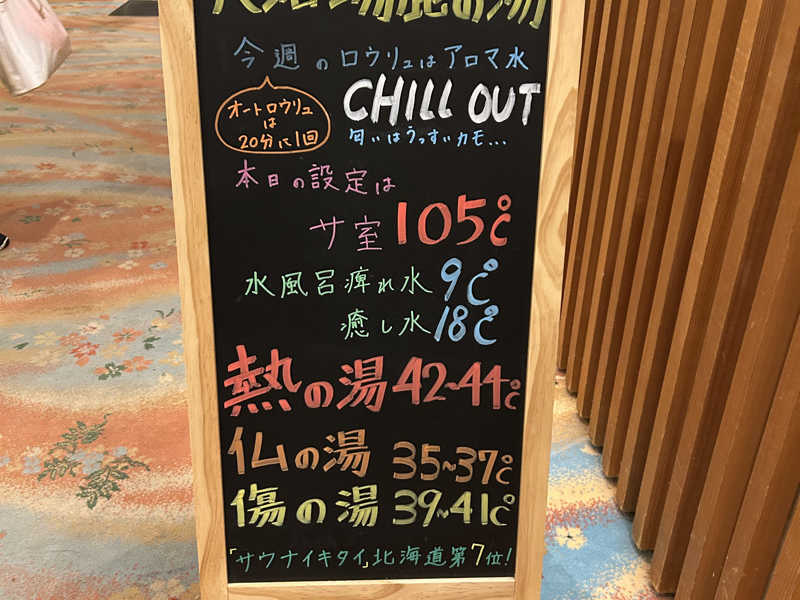 今週のロウリュはアロマ水
オートロウリュ
は
20分に1回
CHILL OUT
匂いはうっすいカモ…
本日の設定は
サ室 105℃
水風呂痺れ水 9℃
癒し水 18℃
熱の湯 42~44℃
仏の湯 35~37℃
傷の湯 39~41℃
「サウナイキタイ」北海道第7位!